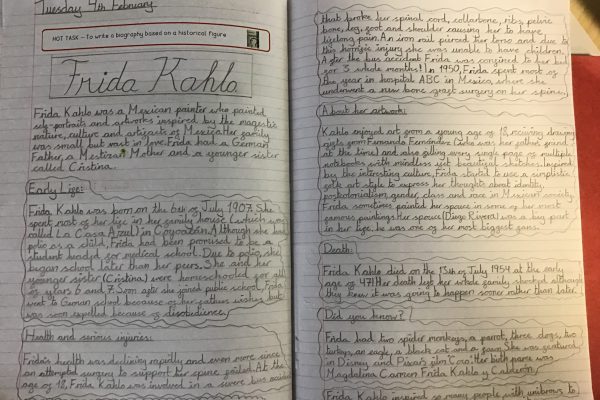 Tuesday 4th February
HOT TASK - To write a biography based on a historical figure
Frida Kahlo
Frida Kahlo was a Mexican painter who painted
self-portraits and artworks inspired by the magestic
nature, culture and artifacts of Mexico. Her family
was small but vast in love. Frida had a German
Father, a Mestiza Mother and a younger sister
called Cristina.
Early Life:
Frida Kahlo was born on the 6th of July 1907. She
spent most of her life in her family house (which was
called La Casa Azul) in Coyoacán. Although she had
polio as a child, Frida had been promised to be a
student headed for medical school. Due to polio, she
began school later than her peers. She and her
younger sister (Cristina) were homeschooled for all
of years 6 and 7. Soon after she joined public school, Frida
went to German school because of her fathers wishes but
was soon expelled because of disobedience.
Health and serious injuries:
Frida's health was declining rapidly and even more since
an attempted surgery to support her spine failed. At the
age of 18, Frida Kahlo was involved in a severe bus accident
that broke her spinal cord, collarbone, ribs, pelvic
bone, leg, foot and shoulder causing her to have
lifelong pain. An iron rail pierced her torso and due to
this horrific injury she was unable to have children.
After the bus accident Frida was confined to her bed
for 3 whole months! In 1950, Frida spent most of
the year in hospital ABC in Mexico, where she
underwent a new bone graft surgery on her spine.
About her artwork:
Kahlo enjoyed art from a young age of 18, reciving drawing
Fernando Fernández (who was her father's friend
at the time) and was filling every single page of multiple
notebooks with mindless yet beautiful sketches. Inspired
by the interesting culture, Frida started to use a simplistic
folk art style to express her thoughts about identity,
postcolonialism, gender, class and race in Mexican society.
Frida sometimes painted her spouce in some of her most
famous paintings. Her spouce (Diego Rivera) was a big part
in her life, he was one of her most biggest fans.
Death:
Frida Kahlo died on the 13th of July 1954 at the early
age of 47! Her death left her whole family shocked although
they knew it was going to happen sooner rather than later.
Did you know?
Frida had two spider monkeys, a parrot, three dogs, two
turkeys, an eagle, a black cat and a fawn. She was featured
in Disney and Pixar's film 'Coco'. Her birth name was
Magdalena Carmen Frida Kahlo y Calderón.
Frida Kahlo inspired so many people with unibrows to